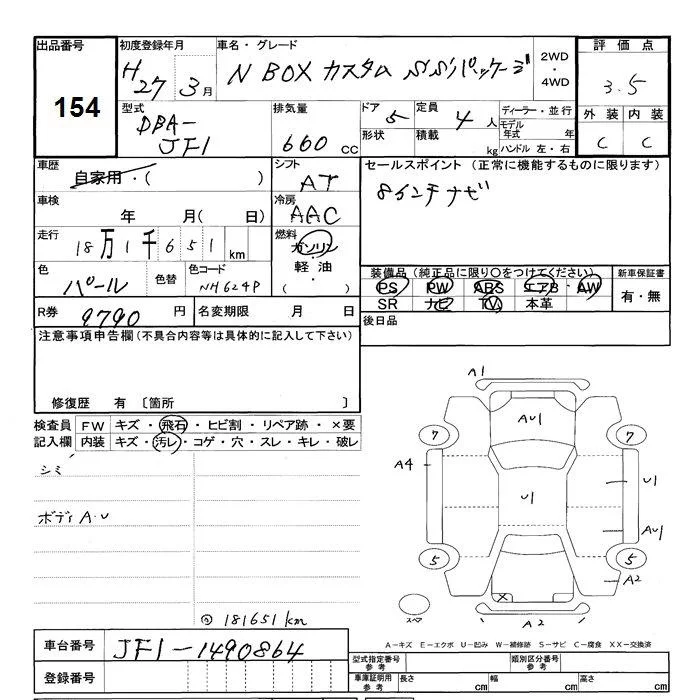 出品番号
154
初度登録年月
H27年 3月
車名・グレード
N BOX カスタム SSパッケージ
2WD
・
4WD
評価点
3.5
外装 内装
C C
型式
DBA-
JF1
排気量
660 cc
ドア 5
形状
定員 4 人
積載 kg
ディーラー・並行
モデル年式 年
ハンドル 左・右
車歴
自家用・( )
シフト
AT
セールスポイント (正常に機能するものに限ります)
8インチナビ
車検
年 月( 日)
冷房
AAC
走行
18万1千651 km
燃料
ガソリン
軽油
( )
色
パール
色替
色コード
NH624P
装備品(純正品に限り○をつけてください)
PS PW ABS エアB AW
SR ナビ TV 本革
新車保証書
有・無
R券 9790 円
名変期限 月 日
後日品
注意事項申告欄(不具合内容等は具体的に記入して下さい)
修復歴 有 〔箇所 〕
検査員 FW キズ・飛石・ヒビ割・リペア跡・×要
記入欄 内装 キズ・汚レ・コゲ・穴・スレ・キレ・破レ
シミ
ボディA・U
◎181651km
A1
AU1
7 7
A4
U1
U1
AU1
5 5
A2
X
スペア
A2
A−キズ E−エクボ U−凹み W−補修跡 S−サビ C−腐食 XX−交換済
車台番号 JF1-1490864
登録番号
型式指定番号
参考
類別区分番号
参考
車庫証明用
参考
長さ cm 幅 cm 高さ cm